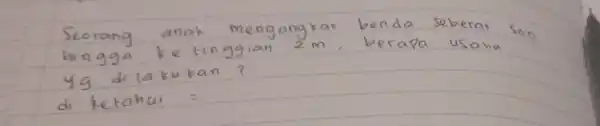 Seorang anak mengangkat benda seberat 50n
hingga ke tinggian 2m, berapa usaha
yg di lakukan ?
di ketahui =